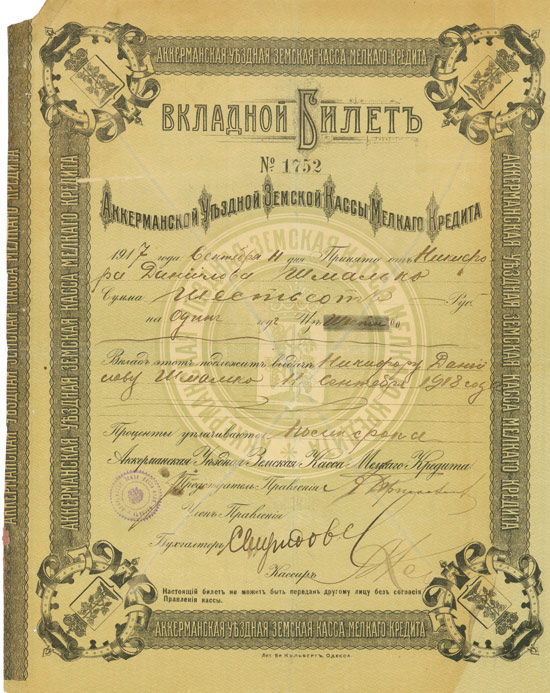 АККЕРМАНСКАЯ УѢЗДНАЯ ЗЕМСКАЯ КАССА МЕЛКАГО КРЕДИТА
ВКЛАДНОЙ БИЛЕТЪ
№ 1752
Аккерманской Уѣздной Земской Кассы Мелкаго Кредита
1917 года Сентября 11 дня Принято отъ Никифо-
ра Данилова Шмалько
Сумма Шестьсотъ Руб.
на одинъ годъ
Вкладъ этотъ подлежитъ выдачѣ Никифору Дании
лову Шмалько 11 Сентября 1918 года
Проценты уплачиваются после срока
Аккерманская Уѣздная Земская Касса Мелкаго Кредита
Предсѣдатель Правленія
Членъ Правленія
Бухгалтеръ
Кассиръ
Настоящій билетъ не можетъ быть переданъ другому лицу безъ согласія
Правленія кассы.
АККЕРМАНСКАЯ УѢЗДНАЯ ЗЕМСКАЯ КАССА МЕЛКАГО КРЕДИТА
АККЕРМАНСКАЯ УѢЗДНАЯ ЗЕМСКАЯ КАССА МЕЛКАГО КРЕДИТА
АККЕРМАНСКАЯ УѢЗДНАЯ ЗЕМСКАЯ КАССА МЕЛКАГО КРЕДИТА
АККЕРМАНСКАЯ УѢЗДНАЯ ЗЕМСКАЯ КАССА МЕЛКАГО КРЕДИТА
Одесса.